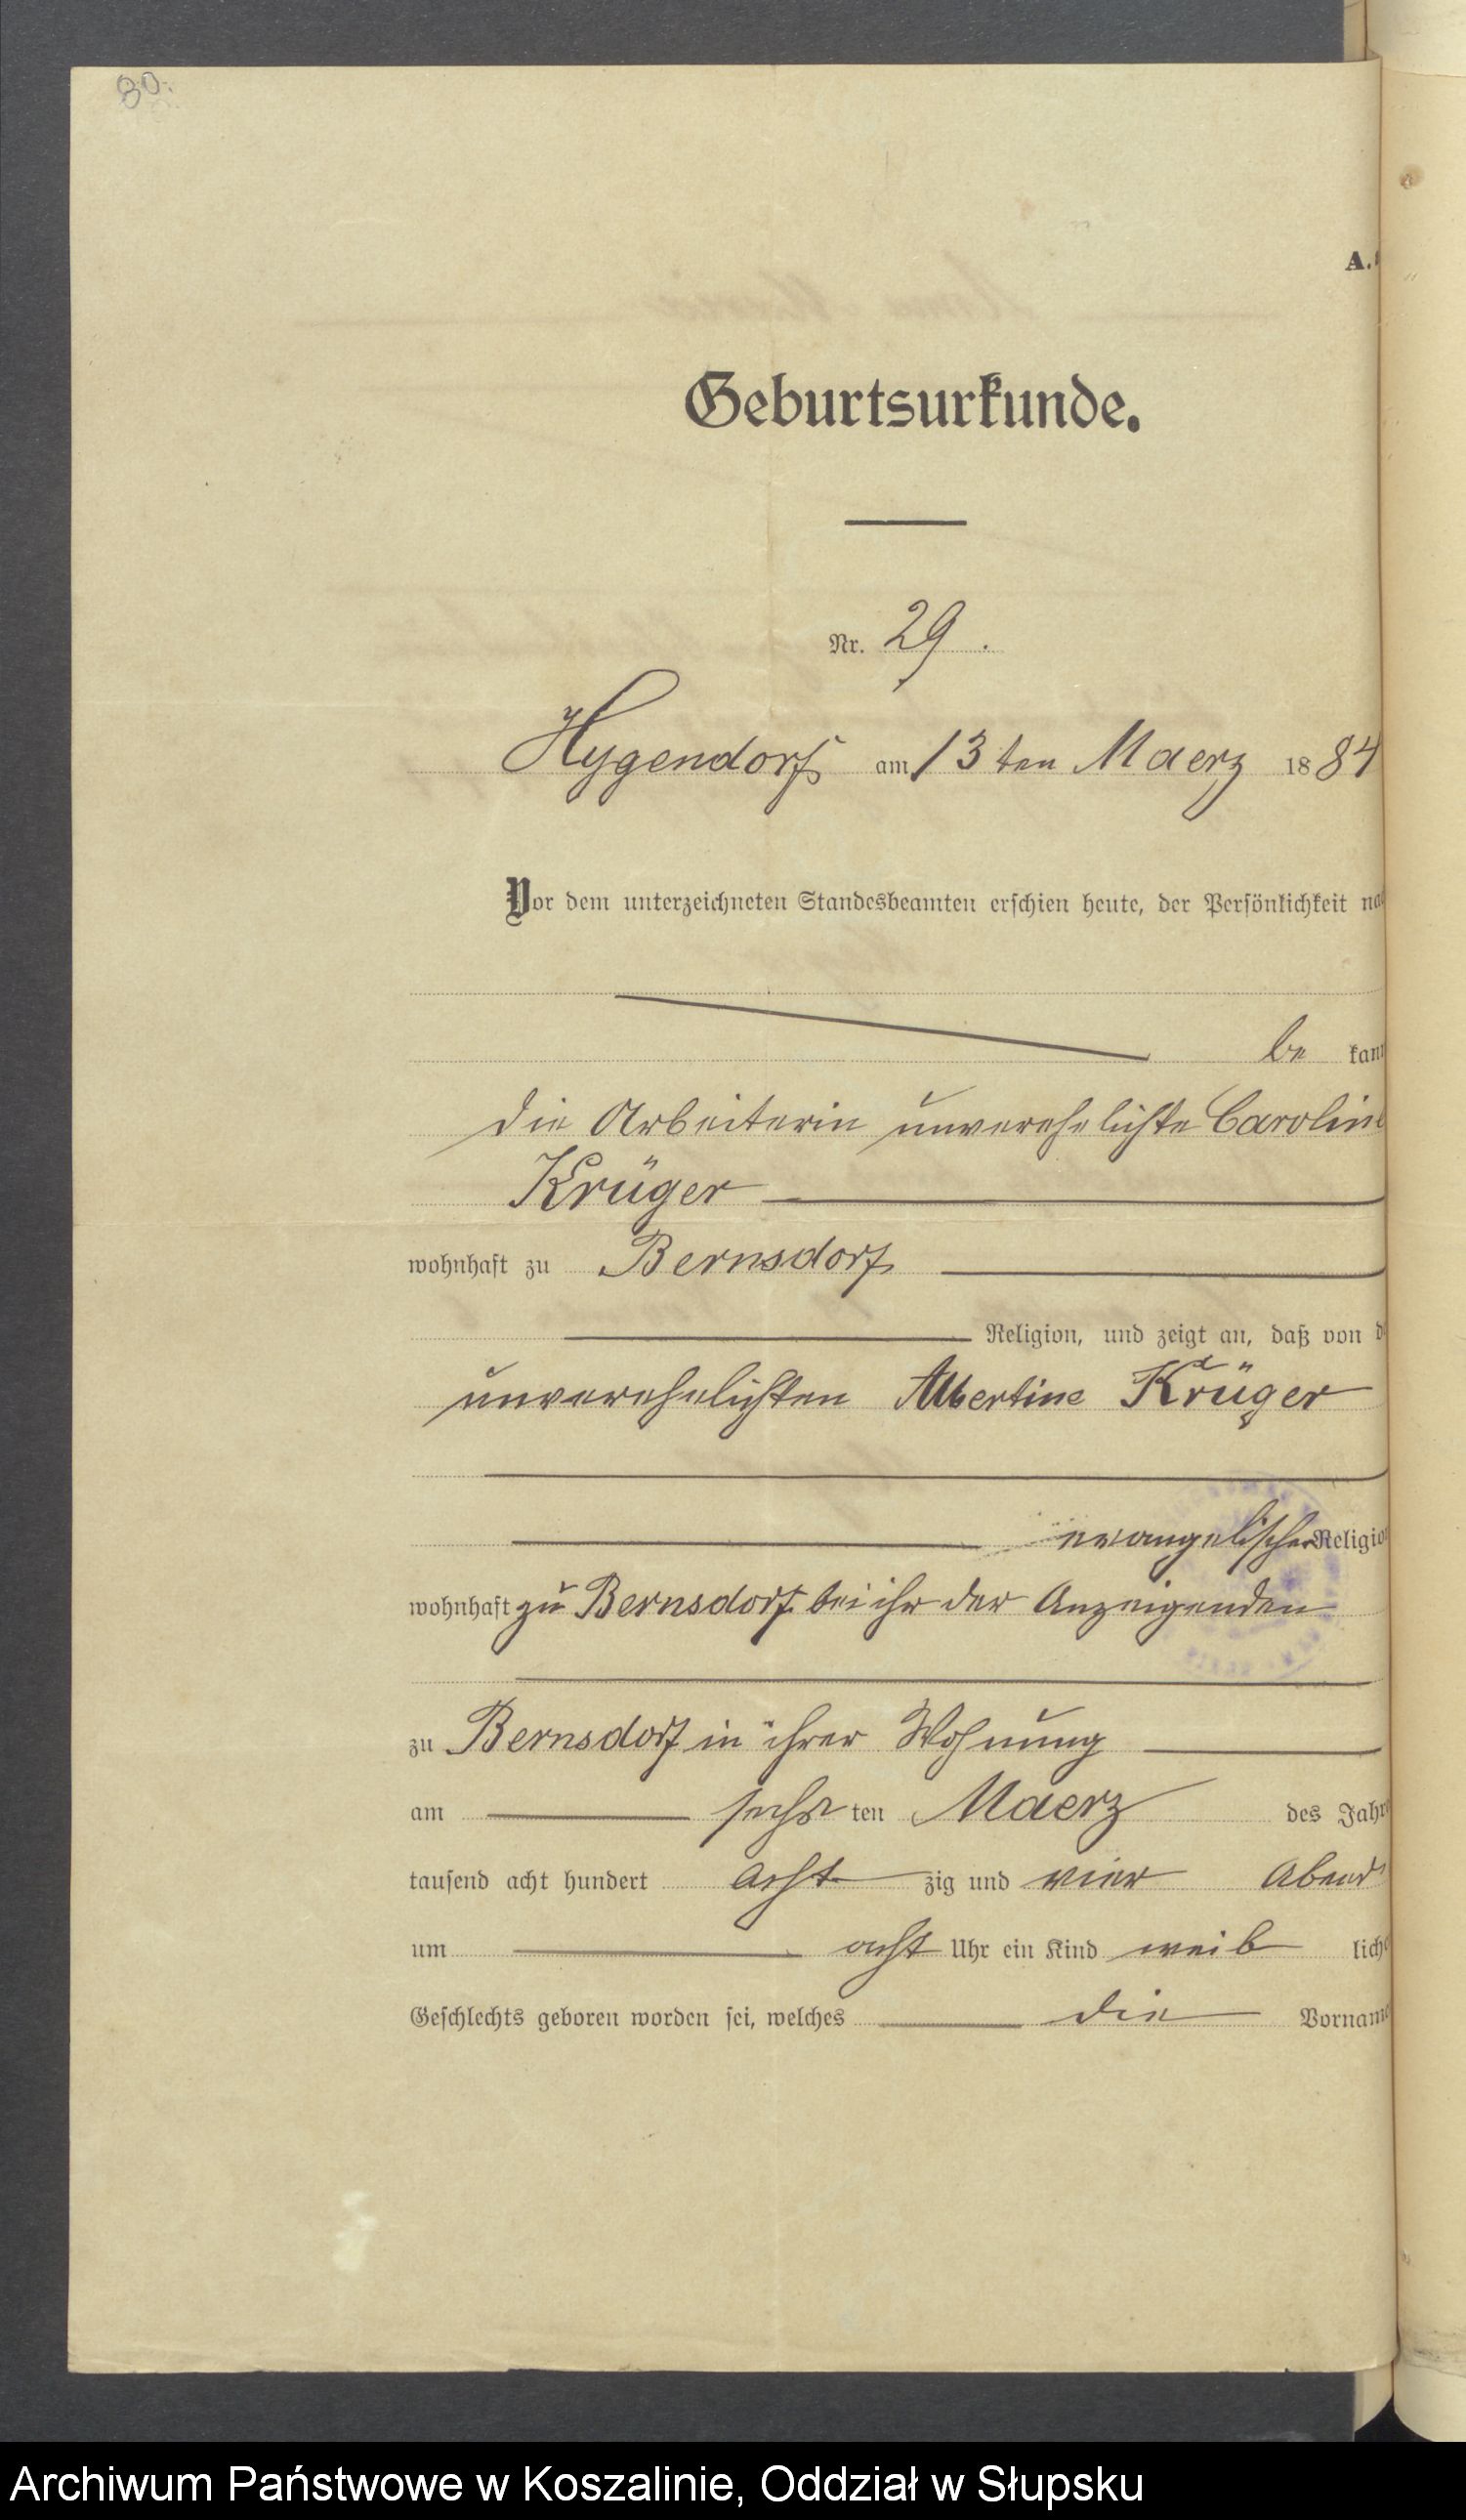 30.
A.
Geburtsurkunde.
Nr. 29.
Hygendorf am 13ten Maerz 1884
Vor dem unterzeichneten Standesbeamten erschien heute, der Persönlichkeit na
be kan
die Arbeiterin unverehelichte Caroline
Krüger
wohnhaft zu Bernsdorf
Religion, und zeigt an, daß von d
unverehelichten Albertine Krüger
evangelischer Religio
wohnhaft zu Bernsdorf bei ihr der Anzeigenden
zu Bernsdorf in ihrer Wohnung
am sechsten Maerz des Jahre
tausend acht hundert acht zig und vier Abends
um acht Uhr ein Kind weib liche
Geschlechts geboren worden sei, welches die Vorname
Archiwum Państwowe w Koszalinie, Oddział w Słupsku